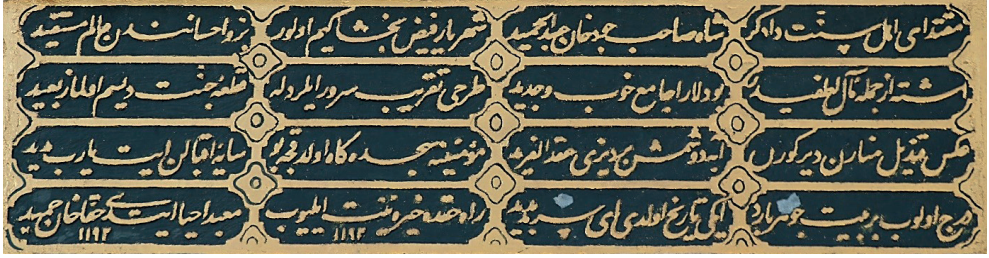 مقتدای اهل سنت دادکر شاه صاحب جود خان عبدالحمید شهریار فیض بخشا کیم اولور بر و احسانندن عالم مستفید
اشته از جمله مآل لطفیدر بو دلارا جامع خوب و جدید طرحی تقریب سرور ایلر دله قطعه جنت دیسم اولماز بعید
عکس قندیل منارن دیر کورن دوشمش بر دیزی عقد الفرید مؤمنینه سجده کاه اولدقجه بو سایه اقبالن ایت یا رب مدید
درج اولوب بر بیت ایکی تاریخ اولدی ای راه حقده خیره نیت ایلیوب ١١٩٢ معبد احیا ایتدی حقا خان حمید ١١٩٢